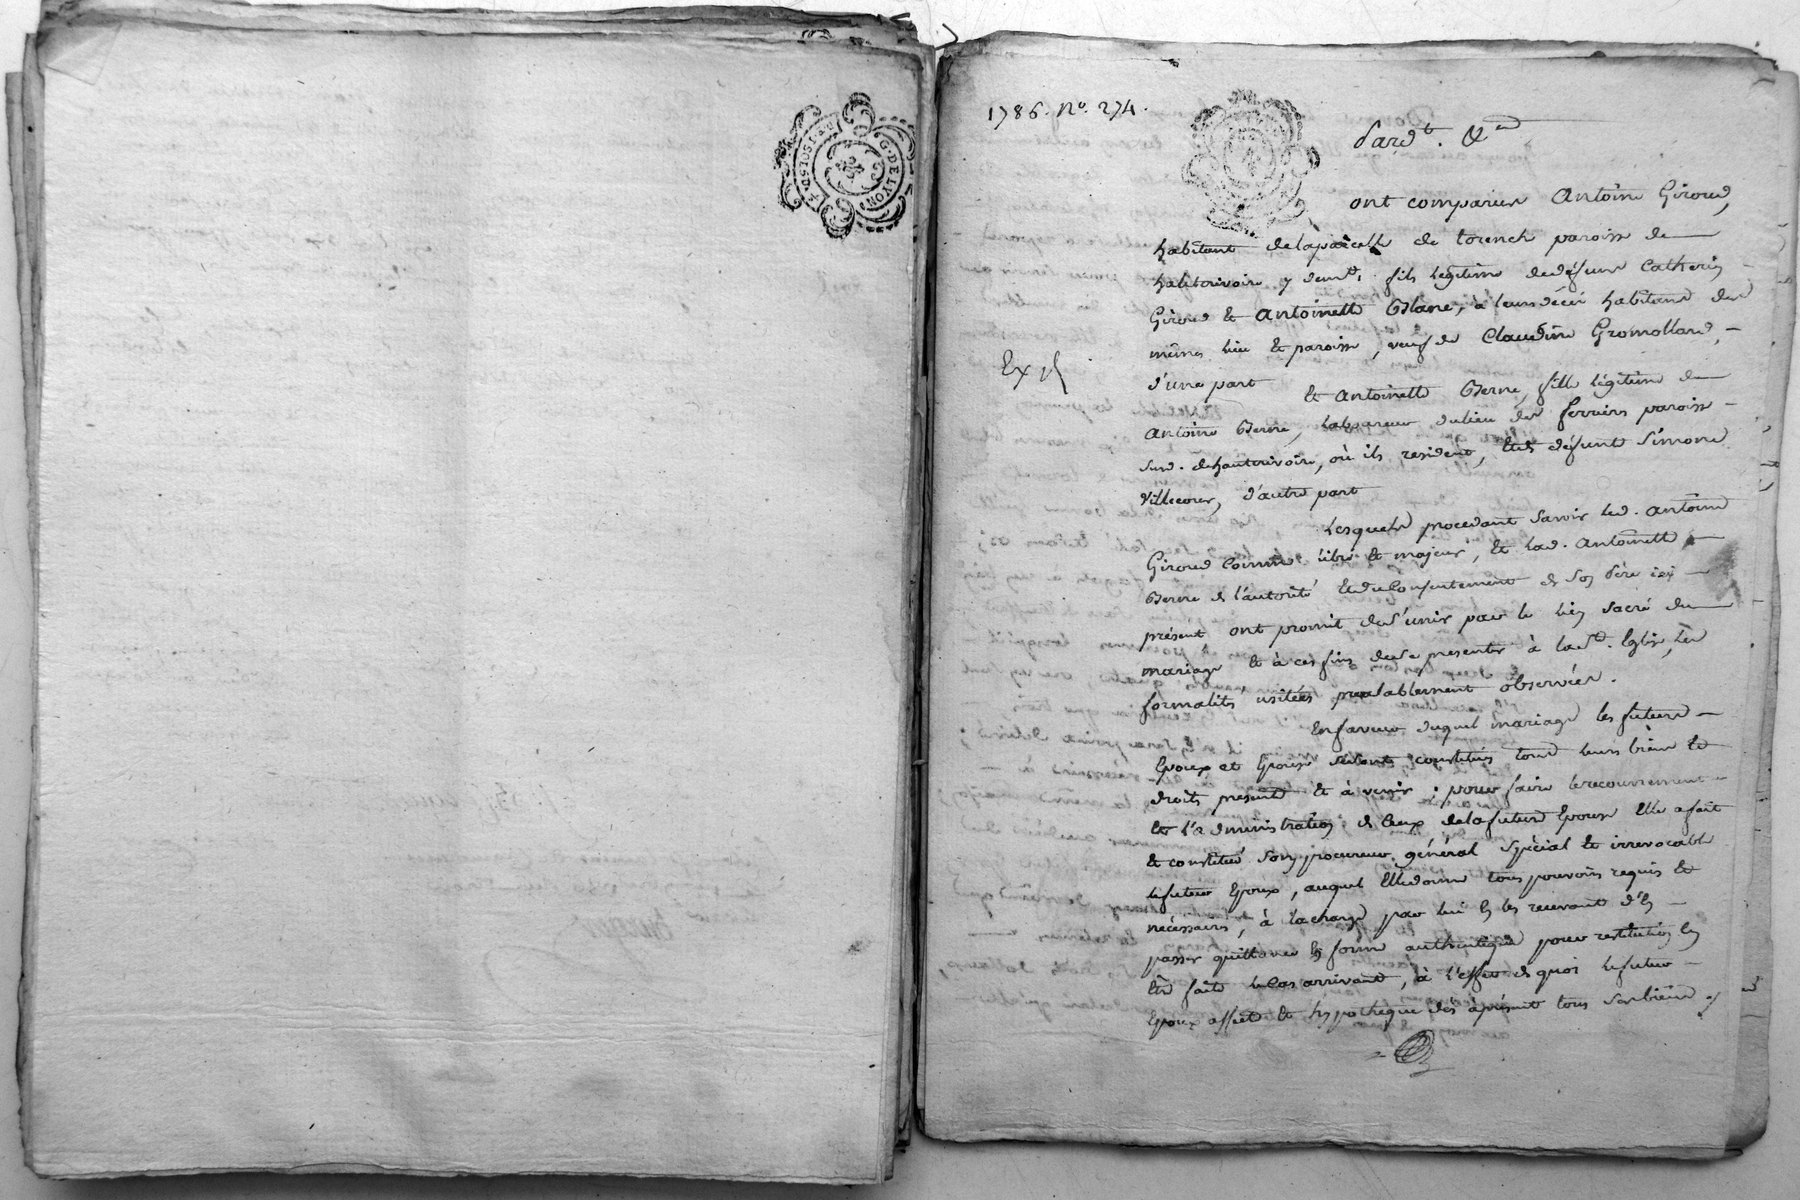 G. DE LYON
1786. N.º 274.
Pard.t &.a
ont comparu Antoine Giroud,
habitant de la parcelle de torench paroisse de
hauterivoire y dem.t, fils légitime de défunt Catherin
Giroud et Antoinette Blanc, à leur décès habitans des
mêmes lieu et paroisse, veuf de Claudine Gromolland,
d'une part
Exp
et Antoinette Berne, fille légitime de
Antoine Berne, laboureur du lieu des ferriers paroisse
susd. de hauterivoire, où ils resident, et de défunte Simone
Villecour, d'autre part
Lesquels procedant savoir led. Antoine
Giroud comme libre et majeur, et lad. Antoinette
Berne de l'autorité et du consentement de son père ici
présent, ont promit de s'unir par le lien sacré du
mariage et à ces fins de se presenter à la S.te Eglise, les
formalités usitées prealablement observées.
En faveur duquel mariage les futurs
Epoux et Epouse se sont constitués tous leurs biens et
droits presents et à venir ; pour faire le recouvrement
et l'administration de ceux de la future Epouse Elle a fait
et constitué son procureur général spécial et irrevocable
le futur Epoux, auquel Elle donne tous pouvoirs requis et
nécessaires, à la charge par lui en les recevant d'en
passer quittance en forme authentique pour restitution en
être faite le cas arrivant, à l'effet de quoi le futur
Epoux affecte et hypothèque dès àprésent tous ses biens